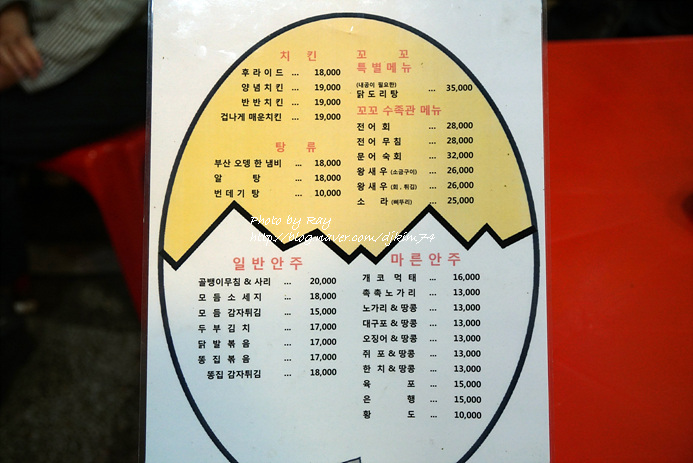 치 킨
후 라 이 드 ... 18,000
양 념 치 킨 ... 19,000
반 반 치 킨 ... 19,000
겁나게 매운치킨 ... 19,000
탕 류
부산 오뎅 한 냄비 ... 18,000
알 탕 ... 18,000
번 데 기 탕 ... 10,000
꼬 꼬
특 별 메 뉴
(내공이 필요한)
닭 도 리 탕 ... 35,000
꼬꼬 수족관 메뉴
전 어 회 ... 28,000
전 어 무 침 ... 28,000
문 어 숙 회 ... 32,000
왕 새 우 (소금구이) ... 26,000
왕 새 우 (회 , 튀김) ... 26,000
소 라 (뼈뚜리) ... 25,000
Photo by Ray
http://blog.naver.com/djkim74
일 반 안 주
골뱅이무침 & 사리 ... 20,000
모 듬 소 세 지 ... 18,000
모 듬 감자튀김 ... 15,000
두 부 김 치 ... 17,000
닭 발 볶 음 ... 17,000
똥 집 볶 음 ... 17,000
똥집 감자튀김 ... 18,000
마 른 안 주
개 코 먹 태 ... 16,000
촉 촉 노 가 리 ... 13,000
노가리 & 땅콩 ... 13,000
대구포 & 땅콩 ... 13,000
오징어 & 땅콩 ... 13,000
쥐 포 & 땅콩 ... 13,000
한 치 & 땅콩 ... 13,000
육 포 ... 15,000
은 행 ... 15,000
황 도 ... 10,000